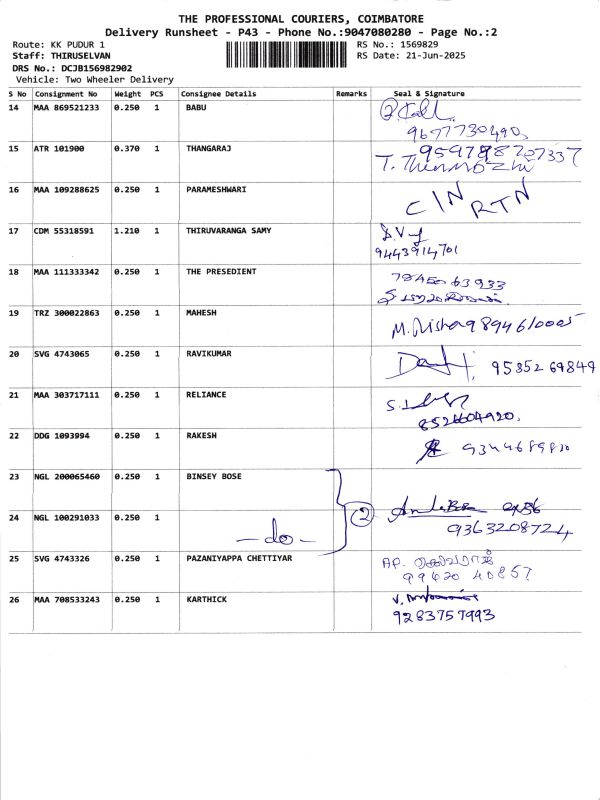 THE PROFESSIONAL COURIERS, COIMBATORE
Delivery Runsheet - P43 - Phone No.:9047080280 - Page No.:2
Route: KK PUDUR 1
RS No.: 1569829
Staff: THIRUSELVAN
RS Date: 21-Jun-2025
DRS No.: DCJB156982902
Vehicle: Two Wheeler Delivery
S No Consignment No Weight PCS Consignee Details Remarks Seal & Signature
14 MAA 869521233 0.250 1 BABU
15 ATR 101900 0.370 1 THANGARAJ
16 MAA 109288625 0.250 1 PARAMESHWARI C/N RTN
17 CDM 55318591 1.210 1 THIRUVARANGA SAMY
9443914701
18 MAA 111333342 0.250 1 THE PRESEDIENT
19 TRZ 300022863 0.250 1 MAHESH
20 SVG 4743065 0.250 1 RAVIKUMAR 95352 69849
21 MAA 303717111 0.250 1 RELIANCE
8526604920.
22 DDG 1093994 0.250 1 RAKESH
23 NGL 200065460 0.250 1 BINSEY BOSE
24 NGL 100291033 0.250 1 -do- 2
9363208724
25 SVG 4743326 0.250 1 PAZANIYAPPA CHETTIYAR
99420 40857
26 MAA 708533243 0.250 1 KARTHICK
9283757993